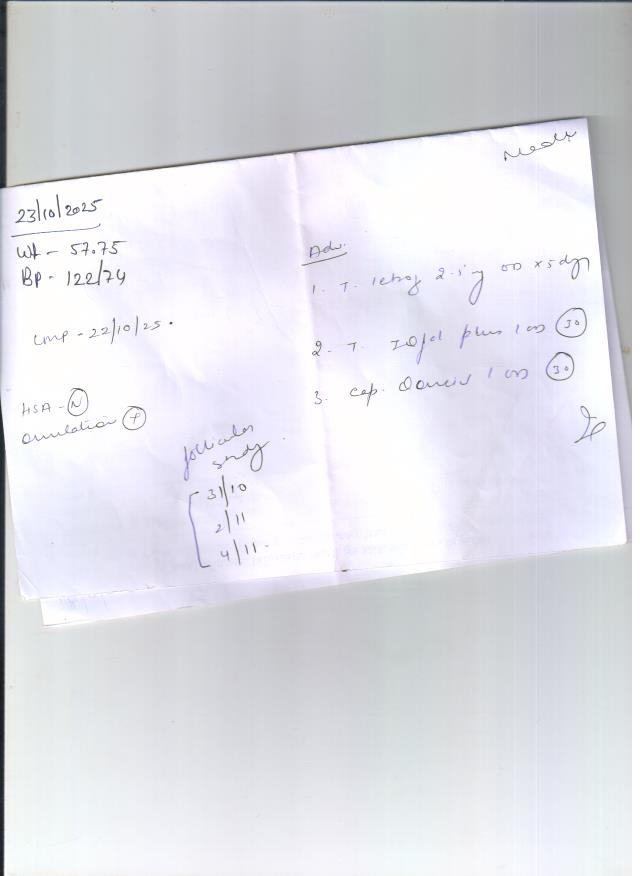 23/10/2025
Wt - 57.75
BP - 122/74
LMP - 22/10/25.
HSA - N
ovulation +
follicular study
31/10
2/11
4/11.
Adv.
1. T. letroz 2.5 mg OD x 5 days
2. T. plus 1 OD 30
3. Cap. 1 OD 30